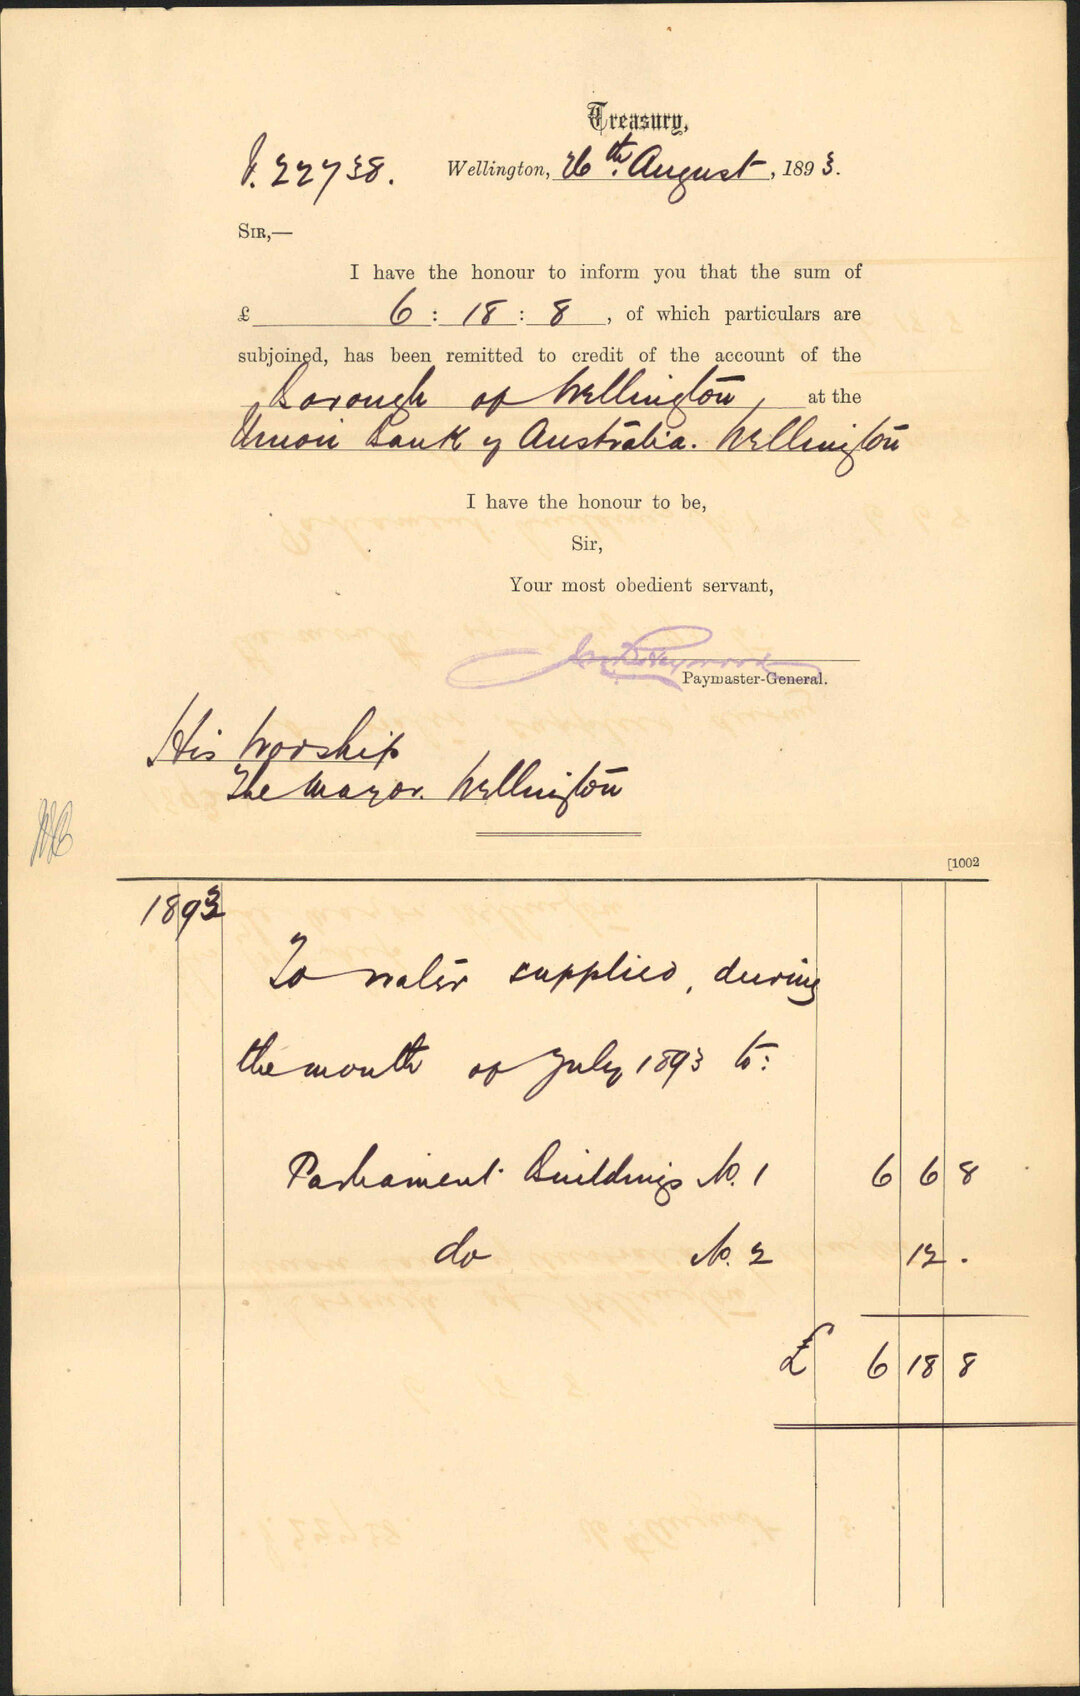 Treasury,
V. 22738. Wellington, 26th. August, 1893.
SIR,—
I have the honour to inform you that the sum of
£ 6 : 18 : 8, of which particulars are
subjoined, has been remitted to credit of the account of the
Borough of Wellington, at the
Union Bank of Australia. Wellington
I have the honour to be,
Sir,
Your most obedient servant,
Paymaster-General.
His Worship
The Mayor. Wellington
[1002
1893
To water supplied, during
the month of July 1893 to:
Parliament Buildings No. 1 6 6 8
do No. 2 12 .
£ 6 18 8